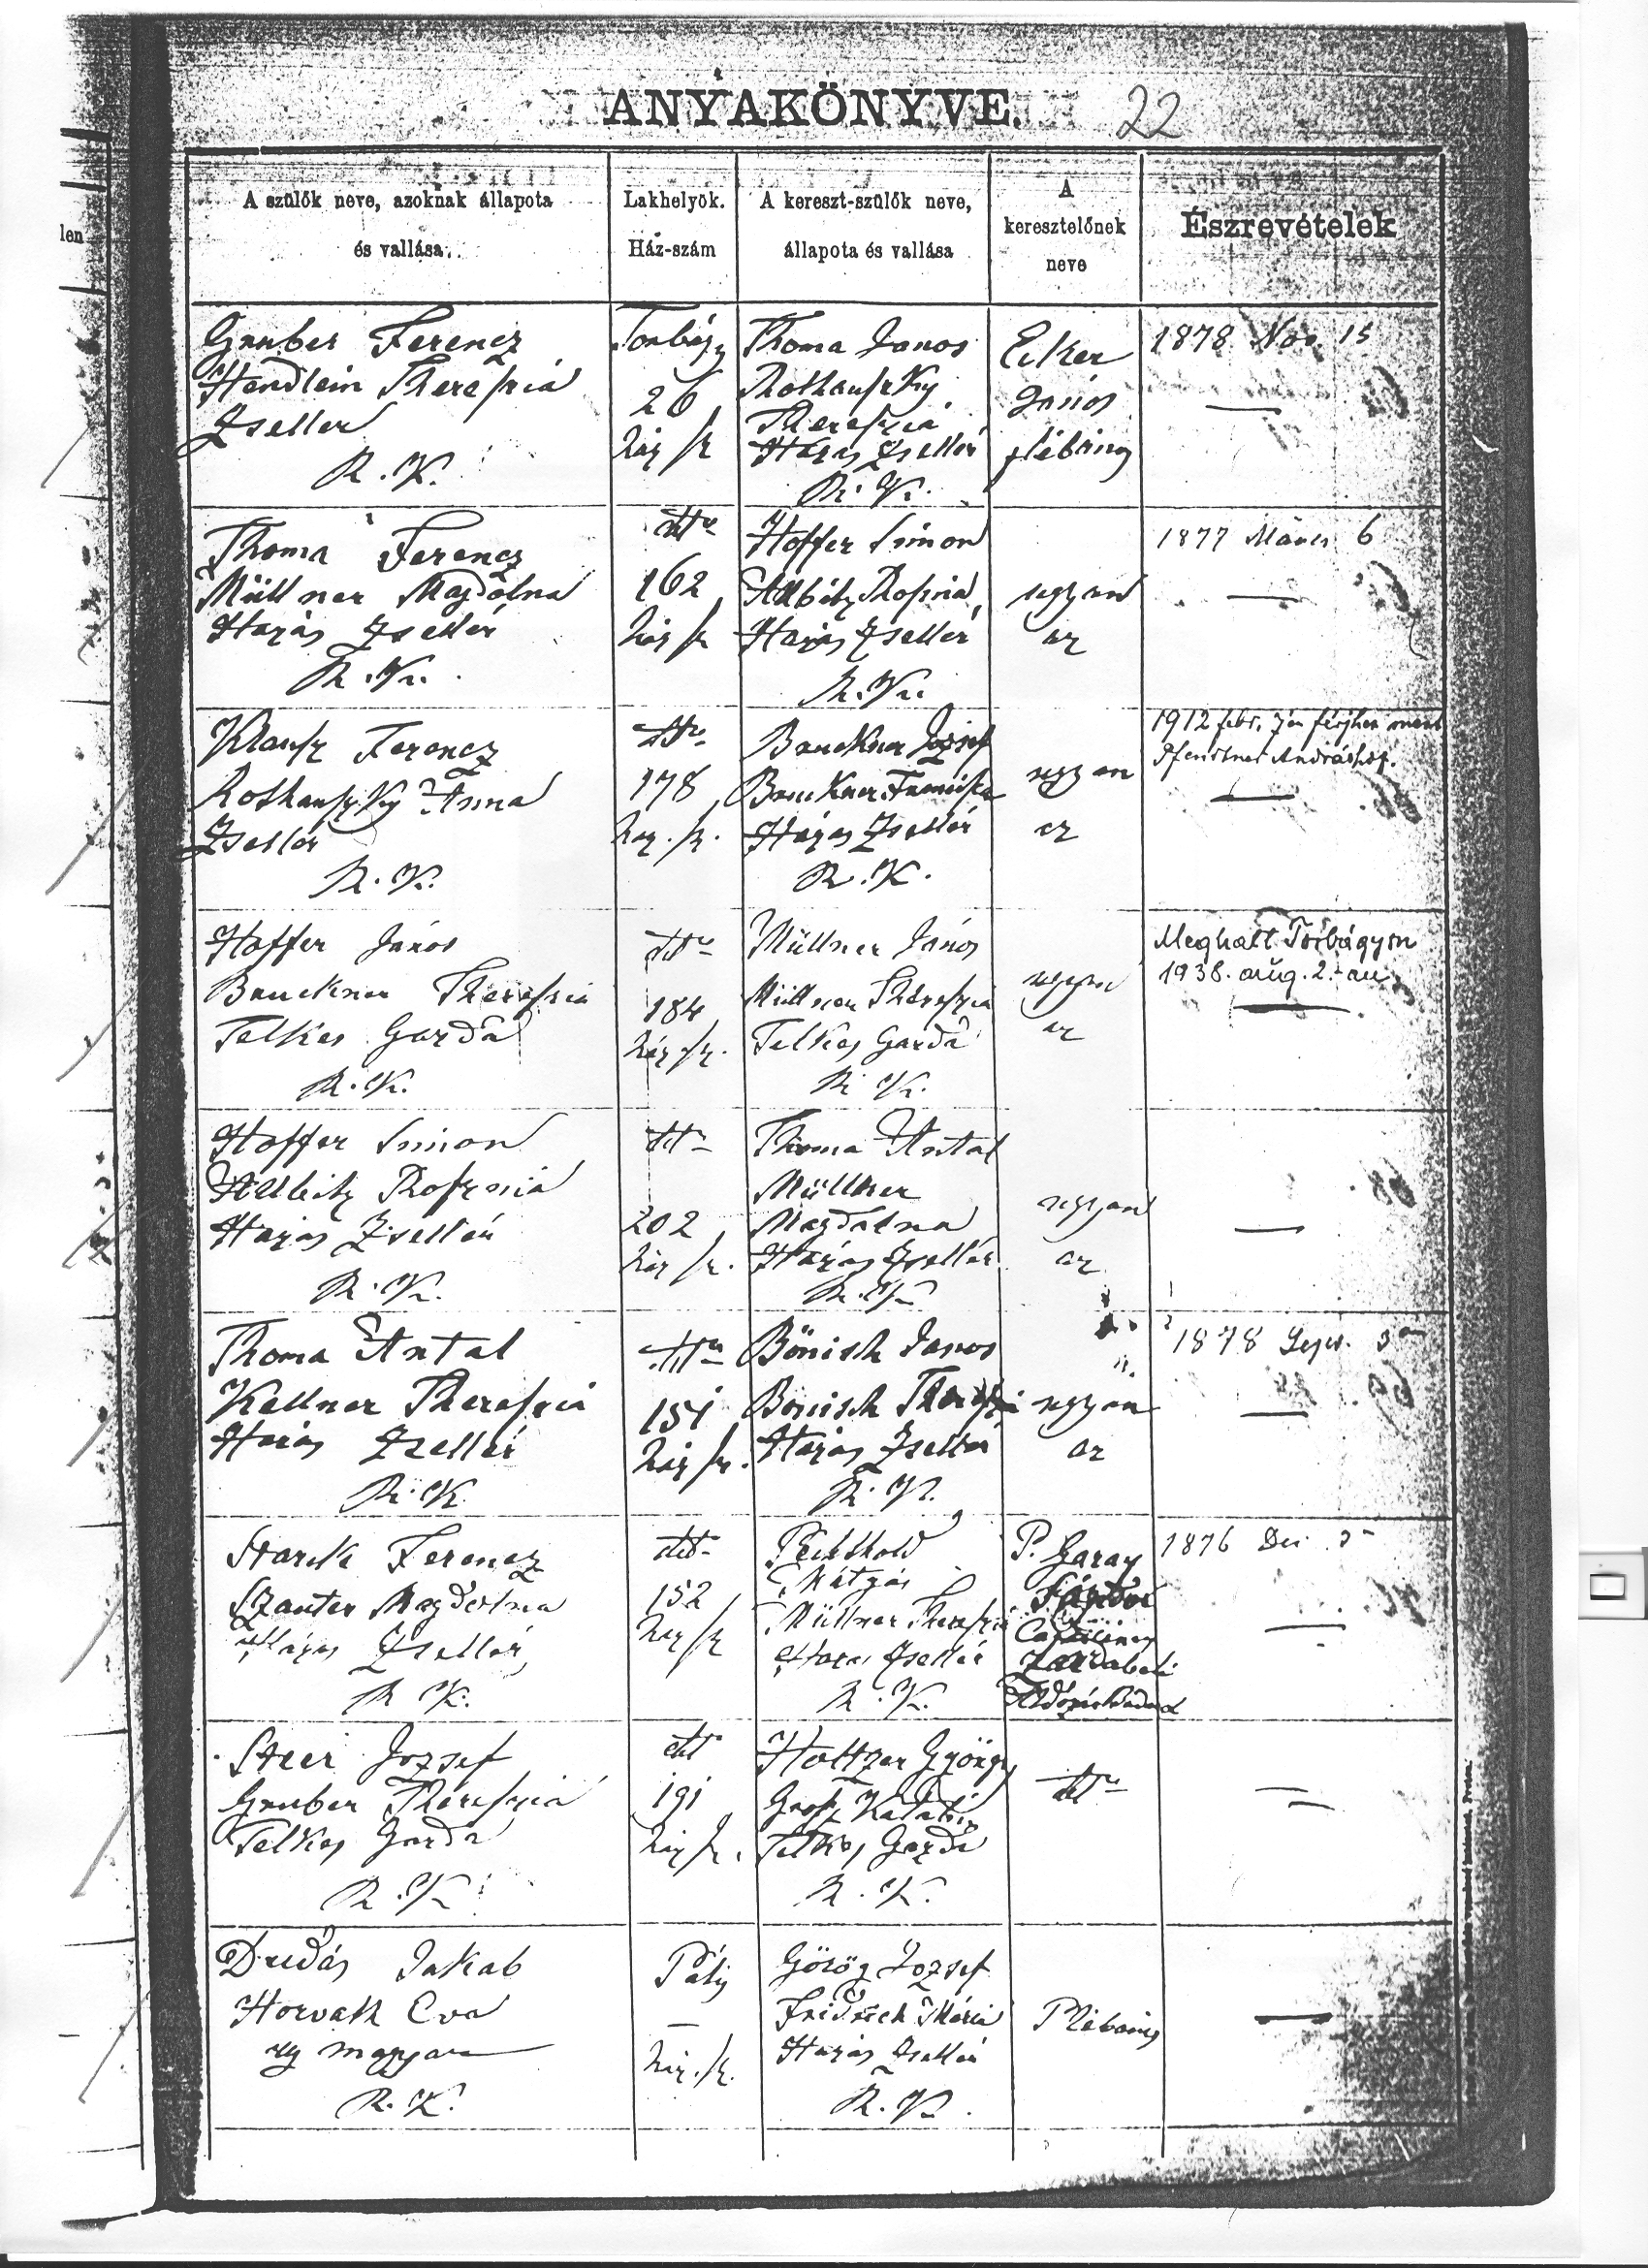 ANYAKÖNYVE. 22
A szülők neve, azoknak állapota
és vallása.
Lakhelyök.
Ház-szám
A kereszt-szülők neve,
állapota és vallása
A
keresztelőnek
neve
Észrevételek
len
Gruber Ferencz
Hendlein Thereszia
Zseller
R. K.
Torbágy
26
ház sz
Thoma Janos
Rothauszky
Thereszia
Házas Zsellér
R. K.
Ecker
János
plébános
1878 Nov. 15
Thoma Ferencz
Müllner Magdolna
Házas Zsellér
R. K.
dtto
162
ház sz
Hoffer Simon
Roszina
Házas Zsellér
R. K.
ugyan
az
1877 Márcz 6
Klausz Ferencz
Rothauszky Anna
Zsellér
R. K.
dtto
178
ház. sz.
Bruckner József
Bruckner Franciska
Házas Zsellér
R. K.
ugyan
az
1912 febr. 7én férjhez ment
Andráshoz.
Hoffer János
Bruckner Thereszia
Telkes Gazda
R. K.
dtto
184
ház sz.
Müllner János
Müllner Thereszia
Telkes Gazda
R. K.
ugyan
az
Meghalt Torbágyon
1938. aug. 2.-án
Hoffer Simon
Rosznia
Házas Zsellér
R. K.
dtto
202
ház sz.
Thoma Antal
Müllner
Magdalna
Házas Zsellér
R. K.
ugyan
az
Thoma Antal
Kellner Thereszia
Házas Zsellér
R. K.
dtto
151
ház sz.
Bönisch Janos
Bönisch Thereszi
Házas Zsellér
R. K.
ugyan
az
1878 Sept. 3
Starck Ferencz
Szauter Magdolna
Házas Zsellér
R. K.
dtto
152
ház sz
Mátyás
Müllner Thereszia
Házas Zsellér
R. K.
P. Garay
1876 Dec. 3
Steer Jozsef
Gruber Thereszia
Telkes Gazda
R. K.
dtt
191
ház sz.
Holtzer György
Grosz Katalin
Telkes Gazda
R. K.
dtto
Dudás Jakab
Horvath Eva
uj magyar
R. K.
Páty
—
ház. sz.
Görög Jozsef
Fridrich Mária
Házas Zsellér
R. K.
Plebános